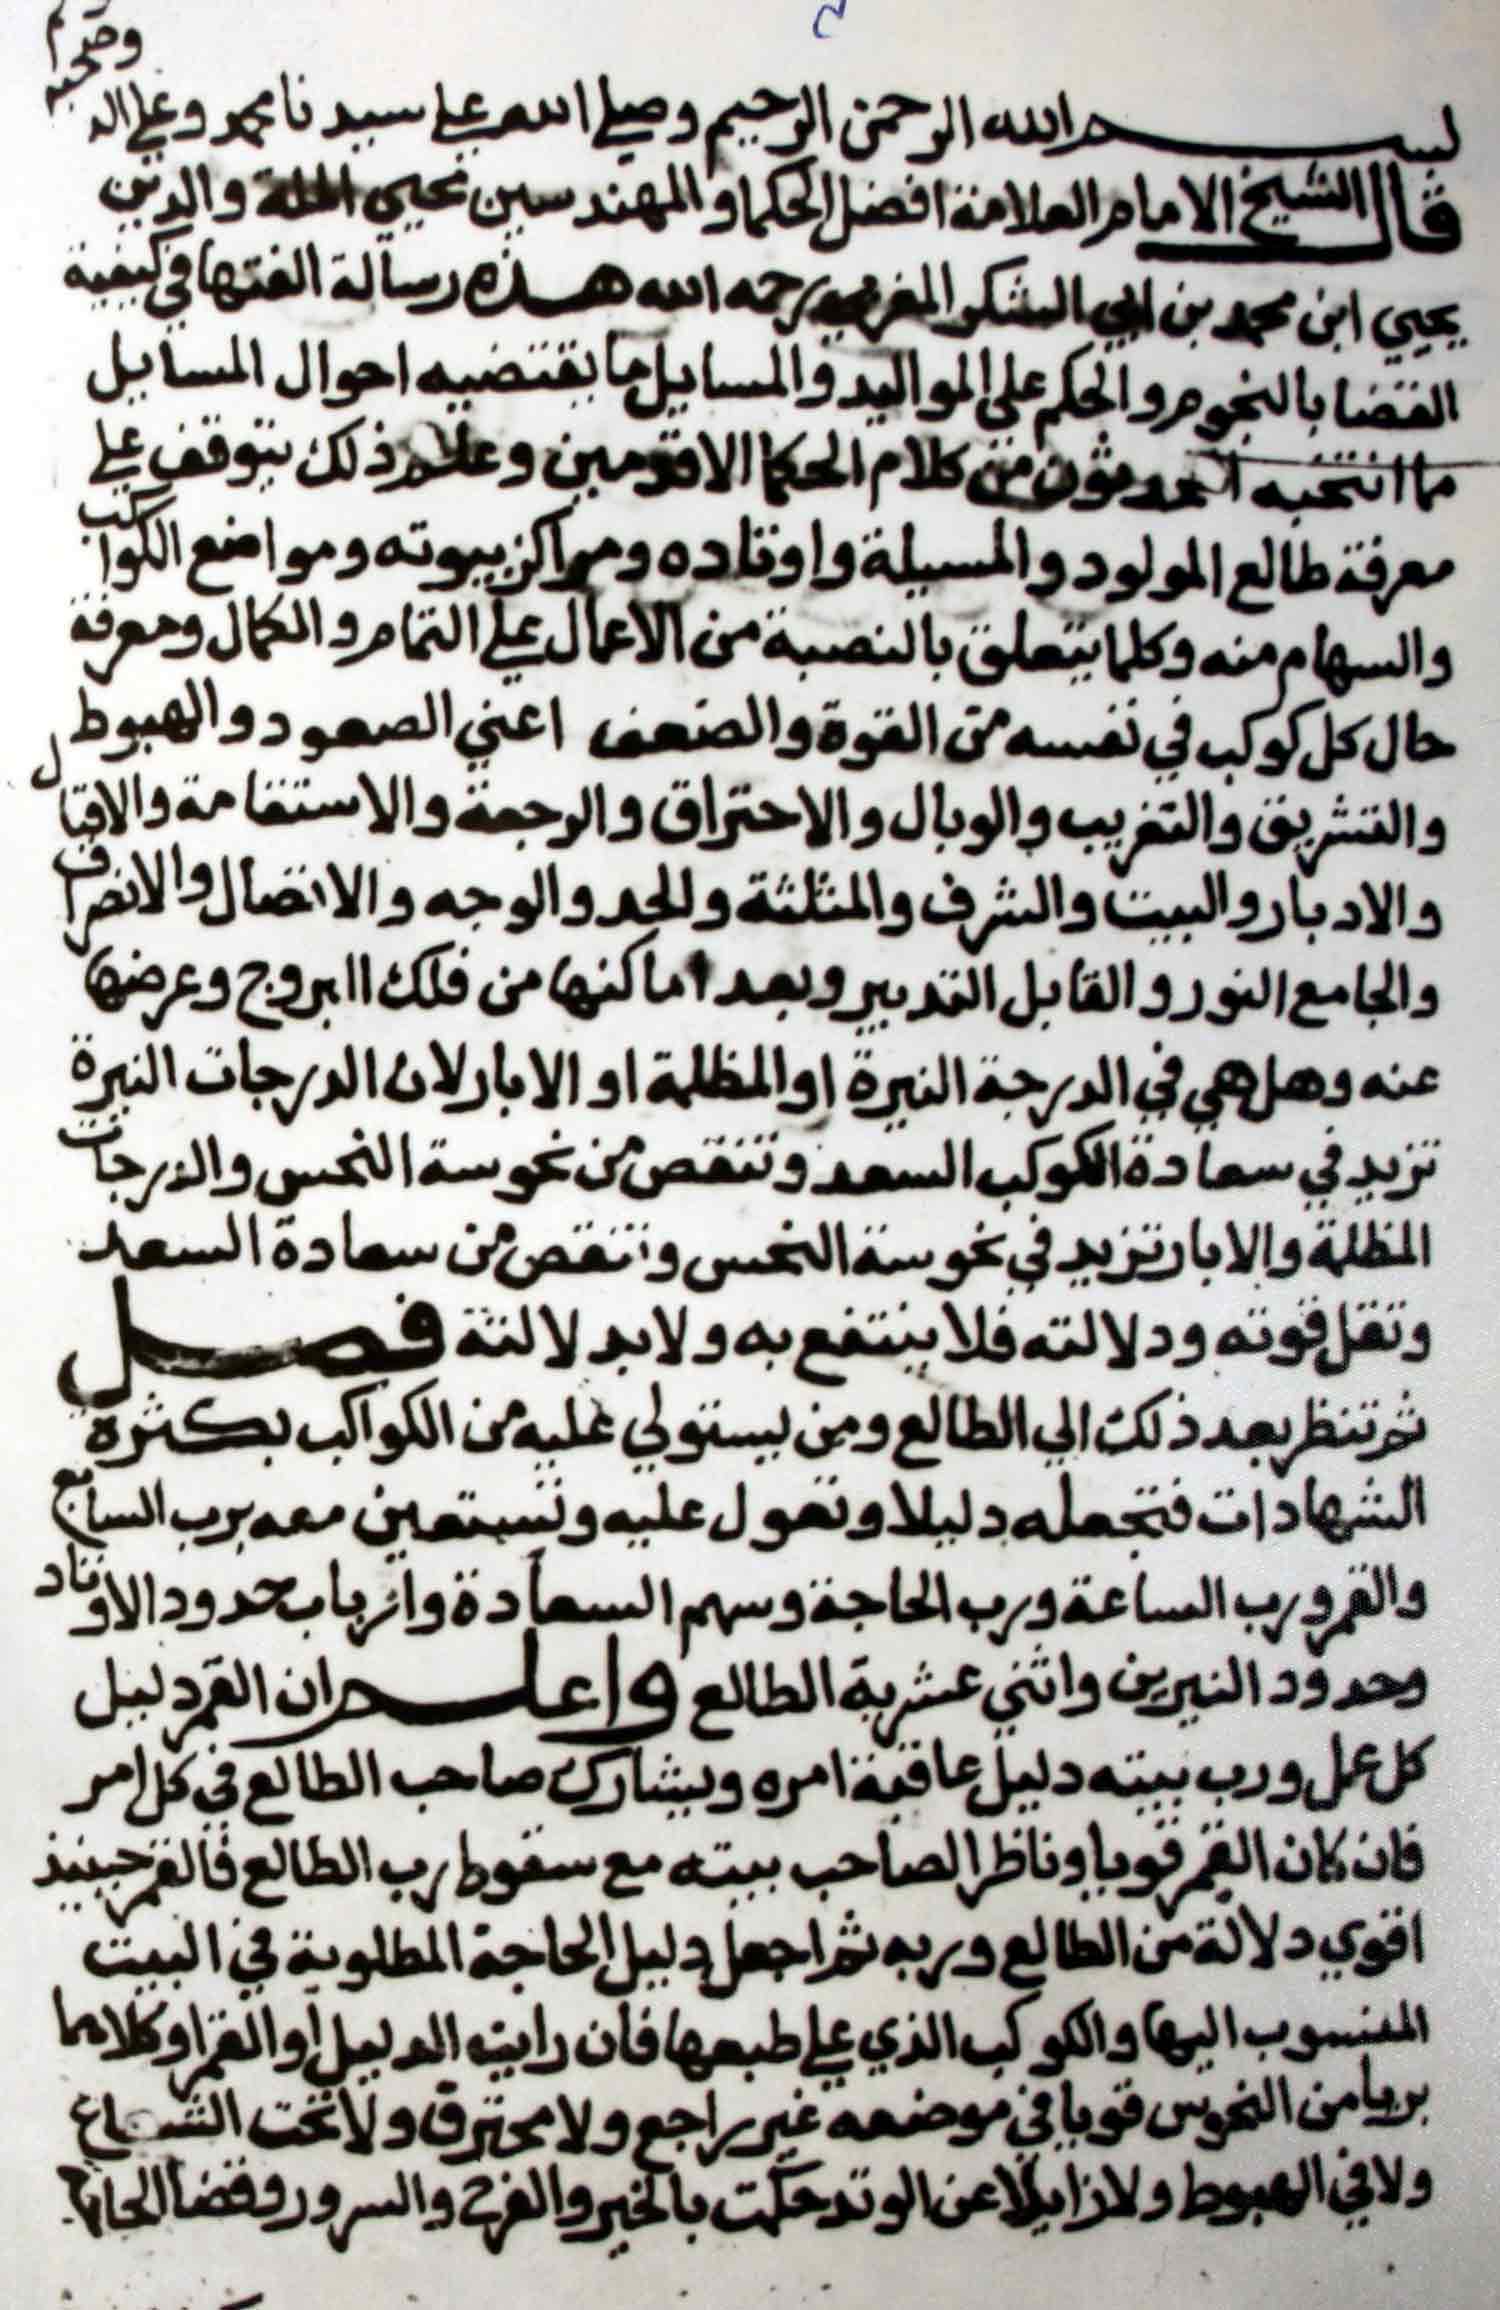 بسم الله الرحمن الرحيم وصلي الله علي سيدنا محمد وعلي اله وصحبه
قال الشيخ الامام العلامة افضل الحكما والمهندسين محيي الملة والدين
يحيي ابن محمد بن ابي الشكر المغربي رحمه الله هذه رسالة الفتها في كيفية
القضا بالنجوم والحكم علي المواليد والمسايل ما يقتضيه احوال المسايل
مما انتخبه من كلام الحكما الاقدمين وعلم ذلك يتوقف علي
معرفة طالع المولود والمسيلة واوتاده ومراكز بيوته ومواضع الكواكب
والسهام منه وكلما يتعلق بالنصبة من الاعمال علي التمام والكمال ومعرفة
حال كل كوكب في نفسه من القوة والضعف اعني الصعود والهبوط
والتشريق والتغريب والوبال والاحتراق والرجعة والاستقامة والاقبال
والادبار والبيت والشرف والمثلثة والحد والوجه والاتصال والانصراف
والجامع النور والقابل التدبير وبعد اماكنها من فلك البروج وعرضها
عنه وهل هي في الدرجة النيرة او المظلمة او الابار لان الدرجات النيرة
تزيد في سعادة الكوكب السعد وتنقص من نحوسة النحس والدرجات
المظلمة والابار تزيد في نحوسة النحس وتنقص من سعادة السعد
وتقل قوته ودلالته فلا ينتفع به ولا بدلالتة فصل
ثم تنظر بعد ذلك الي الطالع ومن يستولي عليه من الكواكب بكثرة
الشهادات فتجعله دليلا وتعول عليه وتستعين معه برب السابع
والقمر ورب الساعة ورب الحاجة وسهم السعادة وارباب حدود الاوتاد
وحدود النيرين واثني عشرية الطالع واعلم ان القمر دليل
كل عمل ورب بيته دليل عاقبة امره ويشارك صاحب الطالع في كل امر
فان كان القمر قويا وناظرا لصاحب بيته مع سقوط رب الطالع فالقمر حينيذ
اقوي دلالة من الطالع وربه ثم اجعل دليل الحاجة المطلوبة في البيت
المنسوب اليها والكوكب الذي علي طبعها فان رايت الدليل او القمر او كلاهما
بريا من النحوس قويا في موضعه غير راجع ولا محترق ولا تحت الشعاع
ولا في الهبوط ولا زايلا عن الوتد حكمت بالخير والفرح والسرور وقضا الحاجة